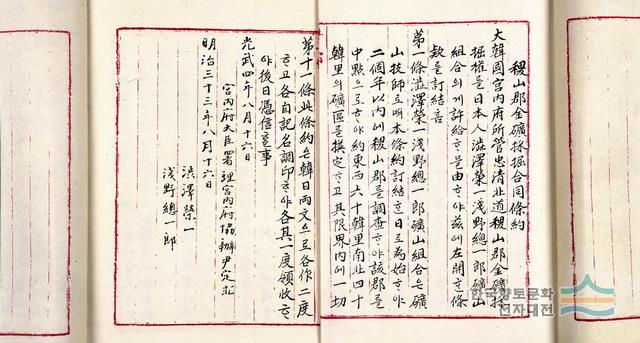 稷山郡金礦採掘合同條約
大韓國宮內府所管忠清北道稷山郡金礦採
掘權을日本人澁澤榮一淺野總一郎礦山
組合의게許給홈을由하야玆에左開한條
款을訂結홈
第一條澁澤榮一淺野總一郎礦山組合은礦
山技師로明本條約訂結한日로為始하야
二個年以內에稷山郡을調查하야該郡을
中點으로하야約東西六十韓里南北四十
韓里의礦區를撰定하고其限界內에一切
第十一條此條約은韓日兩文으로各作二度
하고各自記名調印하야各其一度領收하
야後日憑信할事
光武四年八月十六日
宮內府大臣署理宮內府協辦尹定求
明治三十三年八月十六日
澁澤榮一
淺野總一郎
한국향토문화
전자대전